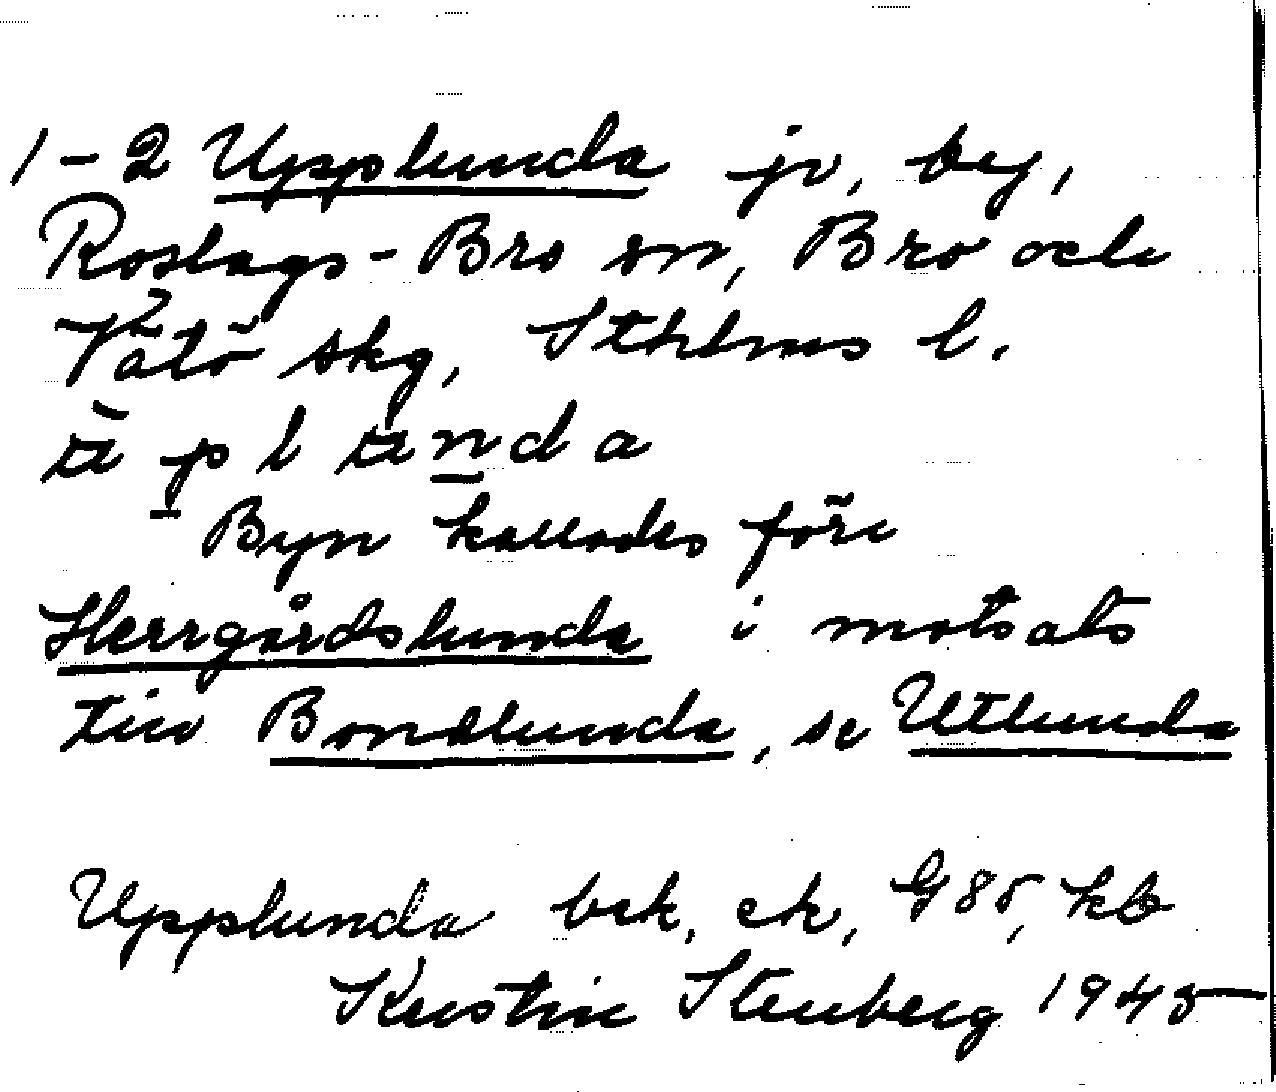 1-2 Upplunda jv, by,
Roslags-Bro sn, Bro och
Vätö skg, Sthlms l.
ùp l unda
Byn kallades förr
Herrgårdslunda i motsats
till Bondlunda, se Utlunda
Upplunda bek, ek, G85, kb
Kerstin Stenberg 1945